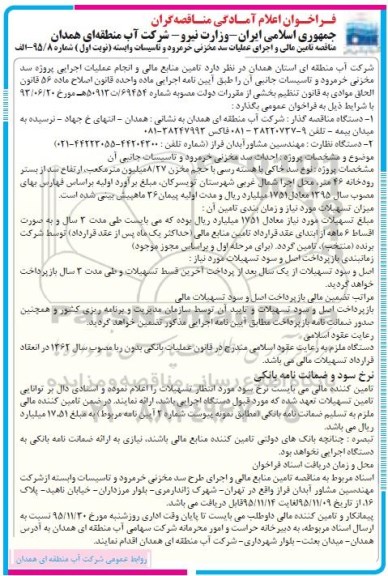 فـراخـوان اعلام آمـادگـی مناقـصه‌گران
جمهوری اسلامی ایران-وزارت نیرو- شرکت آب منطقه‌ای همدان
مناقصه تامین مالی و اجرای عملیات سد مخزنی خرمرود و تاسیسات وابسته (نوبت اول) شماره ۹۵/۸-الف
شرکت آب منطقه ای استان همدان در نظر دارد تامین منابع مالی و انجام عملیات اجرایی پروژه سد
مخزنی خرمرود و تاسیسات جانبی آن را طبق آیین نامه اجرایی ماده واحده قانون اصلاح ماده ۵۶ قانون
الحاق موادی به قانون تنظیم بخشی از مقررات دولت مصوبه شماره ۶۹۴۵۴/ت۵۰۹۱۳هـ مورخ ۹۳/۰۶/۲۰
با شرایط ذیل به فراخوان عمومی بگذارد:
۱- دستگاه مناقصه گذار: شرکت آب منطقه ای همدان به نشانی: همدان - انتهای خ جهاد - نرسیده به
میدان بیمه - تلفن ۹-۳۸۲۲۰۷۳۷-۰۸۱ فاکس ۳۸۲۴۷۹۹۳-۰۸۱
۲- دستگاه نظارت: مهندسین مشاور آبدان فراز (شماره تلفن: ۴۴۲۰۴۳۰۰-۴۴۲۲۳۰۵۵-۰۲۱)
موضوع و مشخصات پروژه: احداث سد مخزنی خرمرود و تاسیسات جانبی آن
مشخصات پروژه: نوع سد خاکی با هسته رسی با حجم مخزن ۸/۲۷میلیون مترمکعب، ارتفاع سد از بستر
رودخانه ۴۶ متر، محل اجرا شمال غربی شهرستان تویسرکان، مبلغ برآورد اولیه براساس فهارس بهای
مصوب سال ۱۳۹۵ معادل۱۷۵۱ میلیارد ریال و مدت اولیه پیمان۳۶ ماه پیش بینی شده است.
میزان تسهیلات مورد نیاز و زمان بندی تامین آن:
مبلغ تسهیلات مورد نیاز معادل ۱۷۵۱ میلیارد ریال بوده که می بایست طی مدت ۳ سال و به صورت
اقساط ۶ ماهه از ابتدای عقد قرارداد تامین منابع مالی (حداکثر یک ماه پس از عقد قرارداد) توسط شرکت
برنده (منتخب)، تامین گردد. (برای مرحله اول و براساس مجوز موجود)
زمانبندی بازپرداخت اصل و سود تسهیلات مورد نیاز:
اصل و سود تسهیلات از یک سال بعد از پرداخت آخرین قسط تسهیلات و طی مدت ۳ سال بازپرداخت
خواهد گردید.
مراتب تضمین مالی بازپرداخت اصل و سود تسهیلات مالی
بازپرداخت اصل و سود تسهیلات و تایید آن توسط سازمان مدیریت و برنامه ریزی کشور و همچنین
صدور ضمانت نامه بازپرداخت مطابق آیین نامه اجرایی مذکور تضمین خواهد گردید.
رعایت عقود اسلامی
دستگاه ملزم به رعایت عقود اسلامی مندرج در قانون عملیات بانکی بدون ربا مصوب سال ۱۳۶۲ در انعقاد
قرارداد تسهیلات مالی می باشد.
نرخ سود و ضمانت نامه بانکی
تامین کننده مالی می بایست نرخ سود مورد انتظار تسهیلات را اعلام نموده و اسنادی دال بر توانایی
تامین تسهیلات تعهد شده که مورد قبول دستگاه اجرایی باشد، ارائه نمایند. در ضمن تامین کننده مالی
ملزم به تسلیم ضمانت نامه بانکی (مطابق نمونه پیوست شماره ۲ آیین نامه مربوط) به مبلغ ۱۷.۵۱ میلیارد
ریال می باشد.
تبصره: چنانچه بانک های دولتی تامین کننده منابع مالی باشند، نیازی به ارائه ضمانت نامه بانکی به
دستگاه اجرایی نخواهد بود.
محل و زمان دریافت اسناد فراخوان
اسناد مربوط به مناقصه تامین منابع مالی و اجرای طرح سد مخزنی خرمرود و تاسیسات وابسته از شرکت
مهندسین مشاور آبدان فراز واقع در تهران- شهرک ژاندارمری- بلوار مرزداران- خیابان ناهید- پلاک
۱۶، از تاریخ ۹۵/۱۱/۰۹ لغایت ۹۵/۱۱/۱۴ قابل دریافت می باشد.
پیمانکار و تامین کننده مالی داوطلب می بایست تا پایان وقت اداری روزشنبه مورخ ۹۵/۱۱/۳۰ نسبت به
ارسال اسناد مربوطه، به دبیرخانه حراست و امور محرمانه شرکت سهامی آب منطقه ای همدان به آدرس
همدان- میدان بعثت- بلوار شهرداری- شرکت آب منطقه ای همدان اقدام نمایند.
روابط عمومی شرکت آب منطقه ای همدان